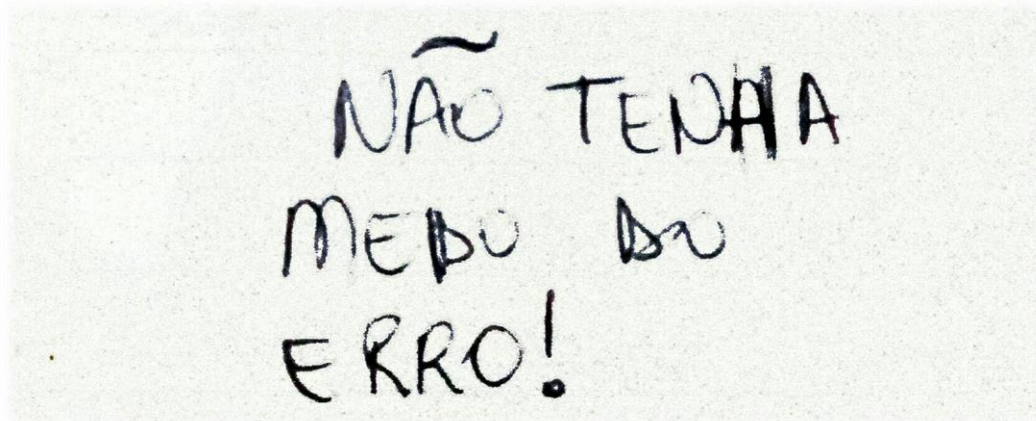 NÃO TENHA
MEDO DO
ERRO!